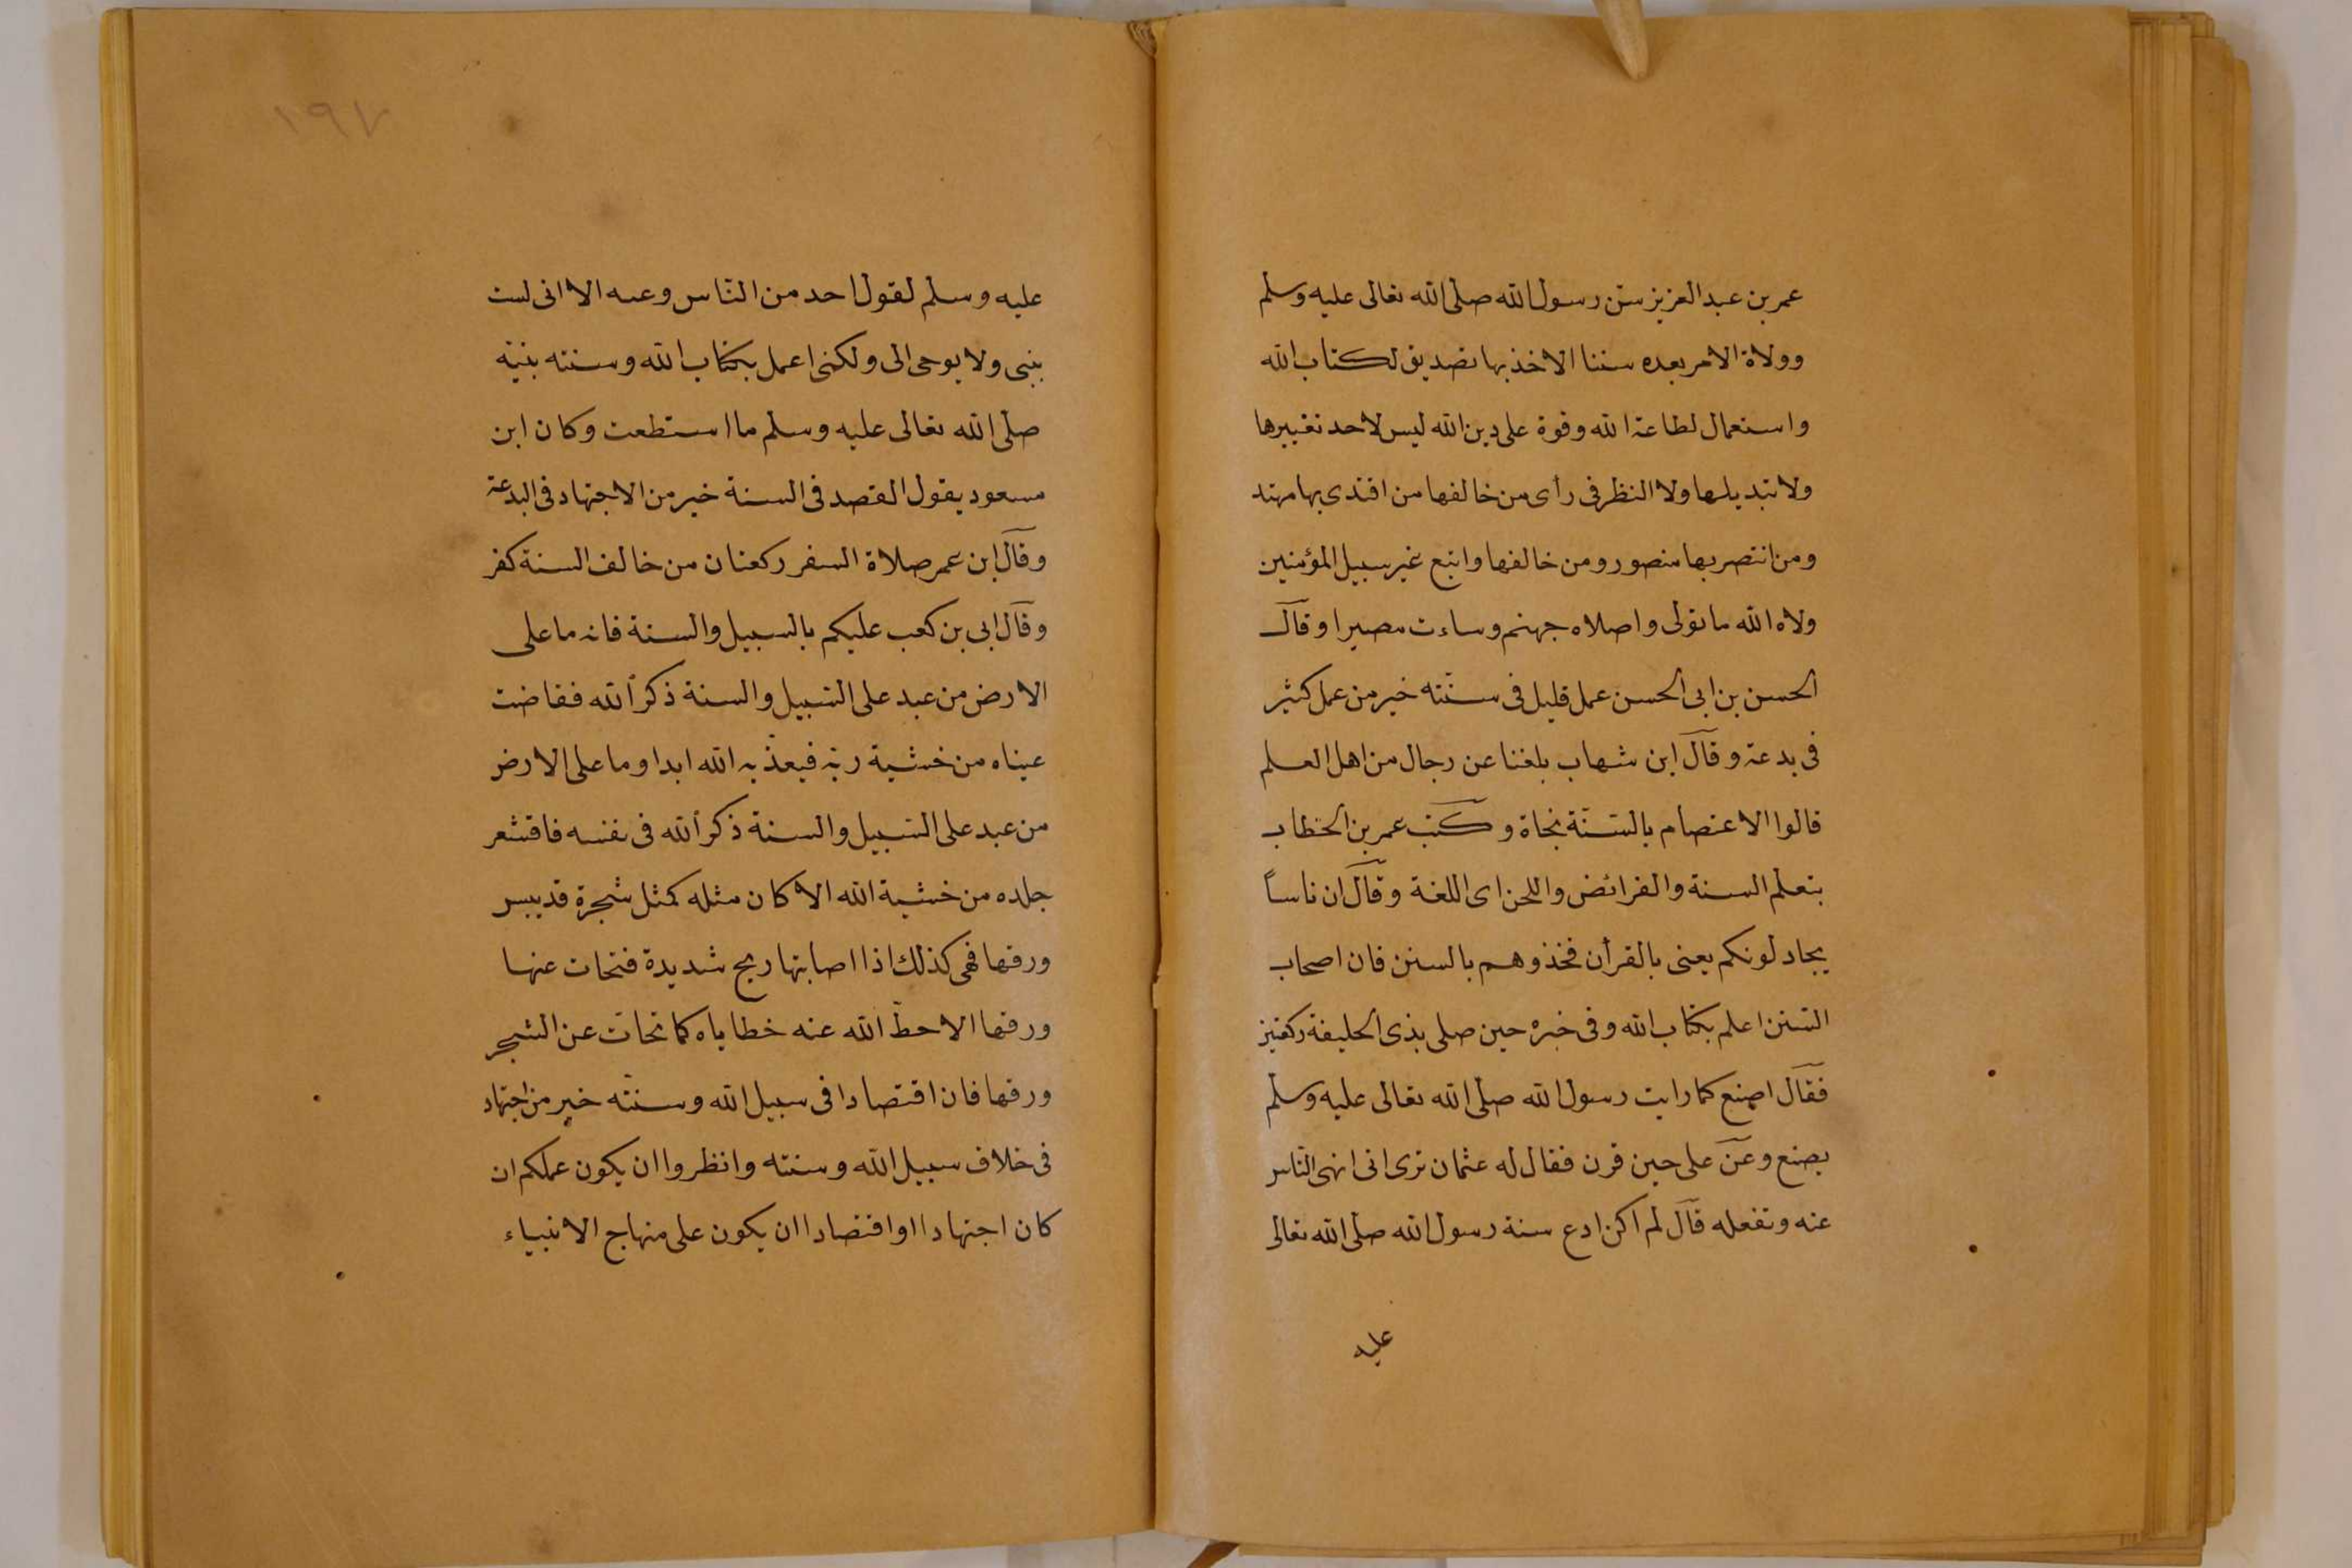 عمر بن عبد العزيز سنّ رسول الله صلى الله تعالى عليه وسلم
وولاة الامر بعده سننا الاخذ بها تصديق لكتاب الله
واستعمال لطاعة الله وقوة على دين الله ليس لاحد تغييرها
ولا تبديلها ولا النظر فى رأى من خالفها من اقتدى بها مهتد
ومن انتصر بها منصور ومن خالفها واتبع غير سبيل المؤمنين
ولاه الله ما تولى واصلاه جهنم وساءت مصيرا وقال
الحسن بن ابى الحسن عمل قليل فى سنّته خير من عمل كثير
فى بدعة وقال ابن شهاب بلغنا عن رجال من اهل العلم
قالوا الاعتصام بالسّنّة نجاة وكتب عمر بن الخطاب
بتعلم السنة والفرائض واللحن اى اللغة وقال ان ناساً
يجادلونكم يعنى بالقرأن فخذوهم بالسنن فان اصحاب
السّنن اعلم بكتاب الله وفى خبره حين صلى بذى الحليفة ركعتين
فقال اصنع كما رايت رسول الله صلى الله تعالى عليه وسلم
يصنع وعن على حين قرن فقال له عثمان ترى انى انهى النّاس
عنه وتفعله قال لم اكن ادع سنة رسول الله صلى الله تعالى
عليه
١٩٧
عليه وسلم لقول احد من النّاس وعنه الا انى لست
بنبى ولا يوحى الى ولكنى اعمل بكتاب الله وسنته بنيّه
صلى الله تعالى عليه وسلم ما استطعت وكان ابن
مسعود يقول القصد فى السنة خير من الاجتهاد فى البدعة
وقال ابن عمر صلاة السفر ركعتان من خالف السنة كفر
وقال ابى بن كعب عليكم بالسبيل والسنة فانه ما على
الارض من عبد على السّبيل والسنة ذكر الله ففاضت
عيناه من خشية ربّه فيعذّبه الله ابدا وما على الارض
من عبد على السّبيل والسنة ذكر الله فى نفسه فاقشعر
جلده من خشية الله الا كان مثله كمثل شجرة قد يبس
ورقها فهى كذلك اذا اصابتها ريح شديدة فتحات عنها
ورقها الا حطّ الله عنه خطاياه كما تحات عن الشجر
ورقها فان اقتصادا فى سبيل الله وسنّته خير من اجتهاد
فى خلاف سبيل الله وسنته وانظروا ان يكون عملكم ان
كان اجتهادا او اقتصادا ان يكون على منهاج الانبياء